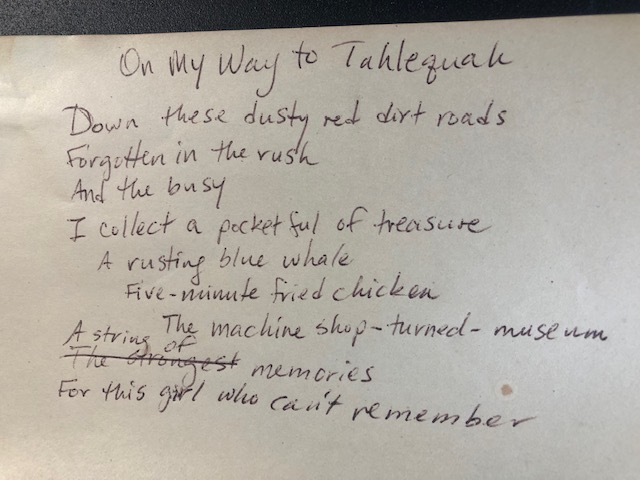 On My Way to Tahlequah
Down these dusty red dirt roads
Forgotten in the rush
And the busy
I collect a pocketful of treasure
A rusting blue whale
Five-minute fried chicken
The machine shop-turned-museum
A string of
The strongest memories
For this girl who can't remember